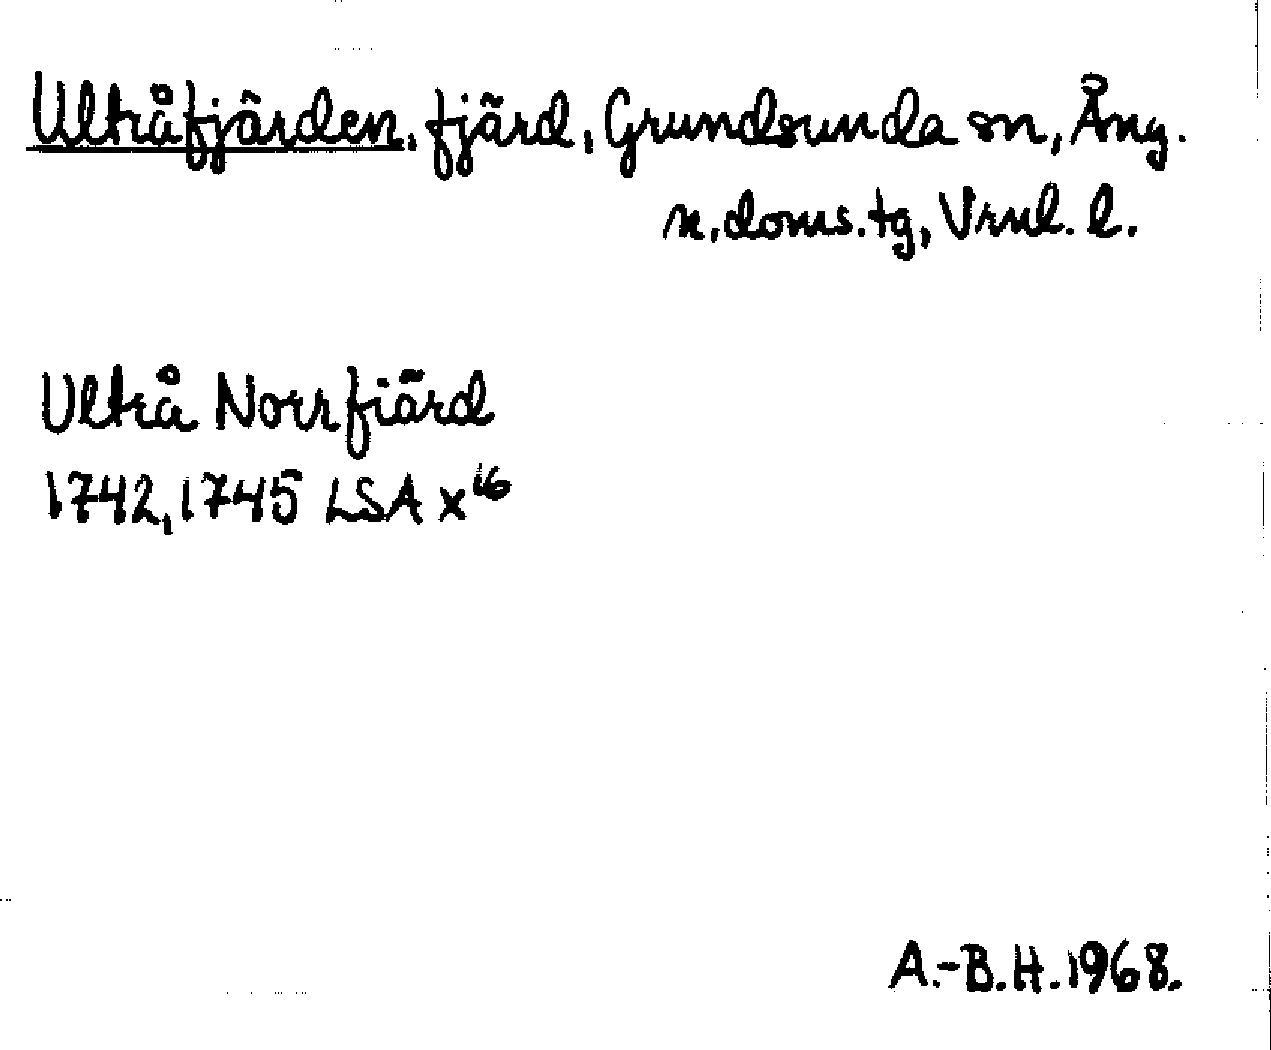 Ultråfjärden, fjärd, Grundsunda sn, Ång.
n. doms. tg, Vrnl. l.
Ultrå Norrfiärd
1742, 1745 LSA x¹⁶
A.-B.H. 1968.